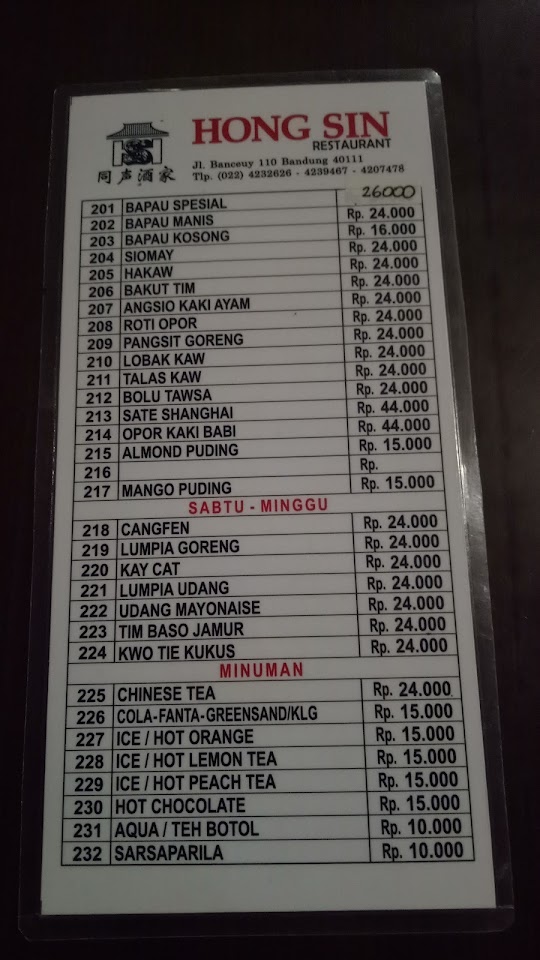 HONG SIN
RESTAURANT
同声酒家
Jl. Banceuy 110 Bandung 40111
Tlp. (022) 4232626 - 4239467 - 4207478
201 BAPAU SPESIAL 26000
202 BAPAU MANIS Rp. 24.000
203 BAPAU KOSONG Rp. 16.000
204 SIOMAY Rp. 24.000
205 HAKAW Rp. 24.000
206 BAKUT TIM Rp. 24.000
207 ANGSIO KAKI AYAM Rp. 24.000
208 ROTI OPOR Rp. 24.000
209 PANGSIT GORENG Rp. 24.000
210 LOBAK KAW Rp. 24.000
211 TALAS KAW Rp. 24.000
212 BOLU TAWSA Rp. 24.000
213 SATE SHANGHAI Rp. 44.000
214 OPOR KAKI BABI Rp. 44.000
215 ALMOND PUDING Rp. 15.000
216 Rp.
217 MANGO PUDING Rp. 15.000
SABTU - MINGGU
218 CANGFEN Rp. 24.000
219 LUMPIA GORENG Rp. 24.000
220 KAY CAT Rp. 24.000
221 LUMPIA UDANG Rp. 24.000
222 UDANG MAYONAISE Rp. 24.000
223 TIM BASO JAMUR Rp. 24.000
224 KWO TIE KUKUS Rp. 24.000
MINUMAN
225 CHINESE TEA Rp. 24.000
226 COLA-FANTA-GREENSAND/KLG Rp. 15.000
227 ICE / HOT ORANGE Rp. 15.000
228 ICE / HOT LEMON TEA Rp. 15.000
229 ICE / HOT PEACH TEA Rp. 15.000
230 HOT CHOCOLATE Rp. 15.000
231 AQUA / TEH BOTOL Rp. 10.000
232 SARSAPARILA Rp. 10.000